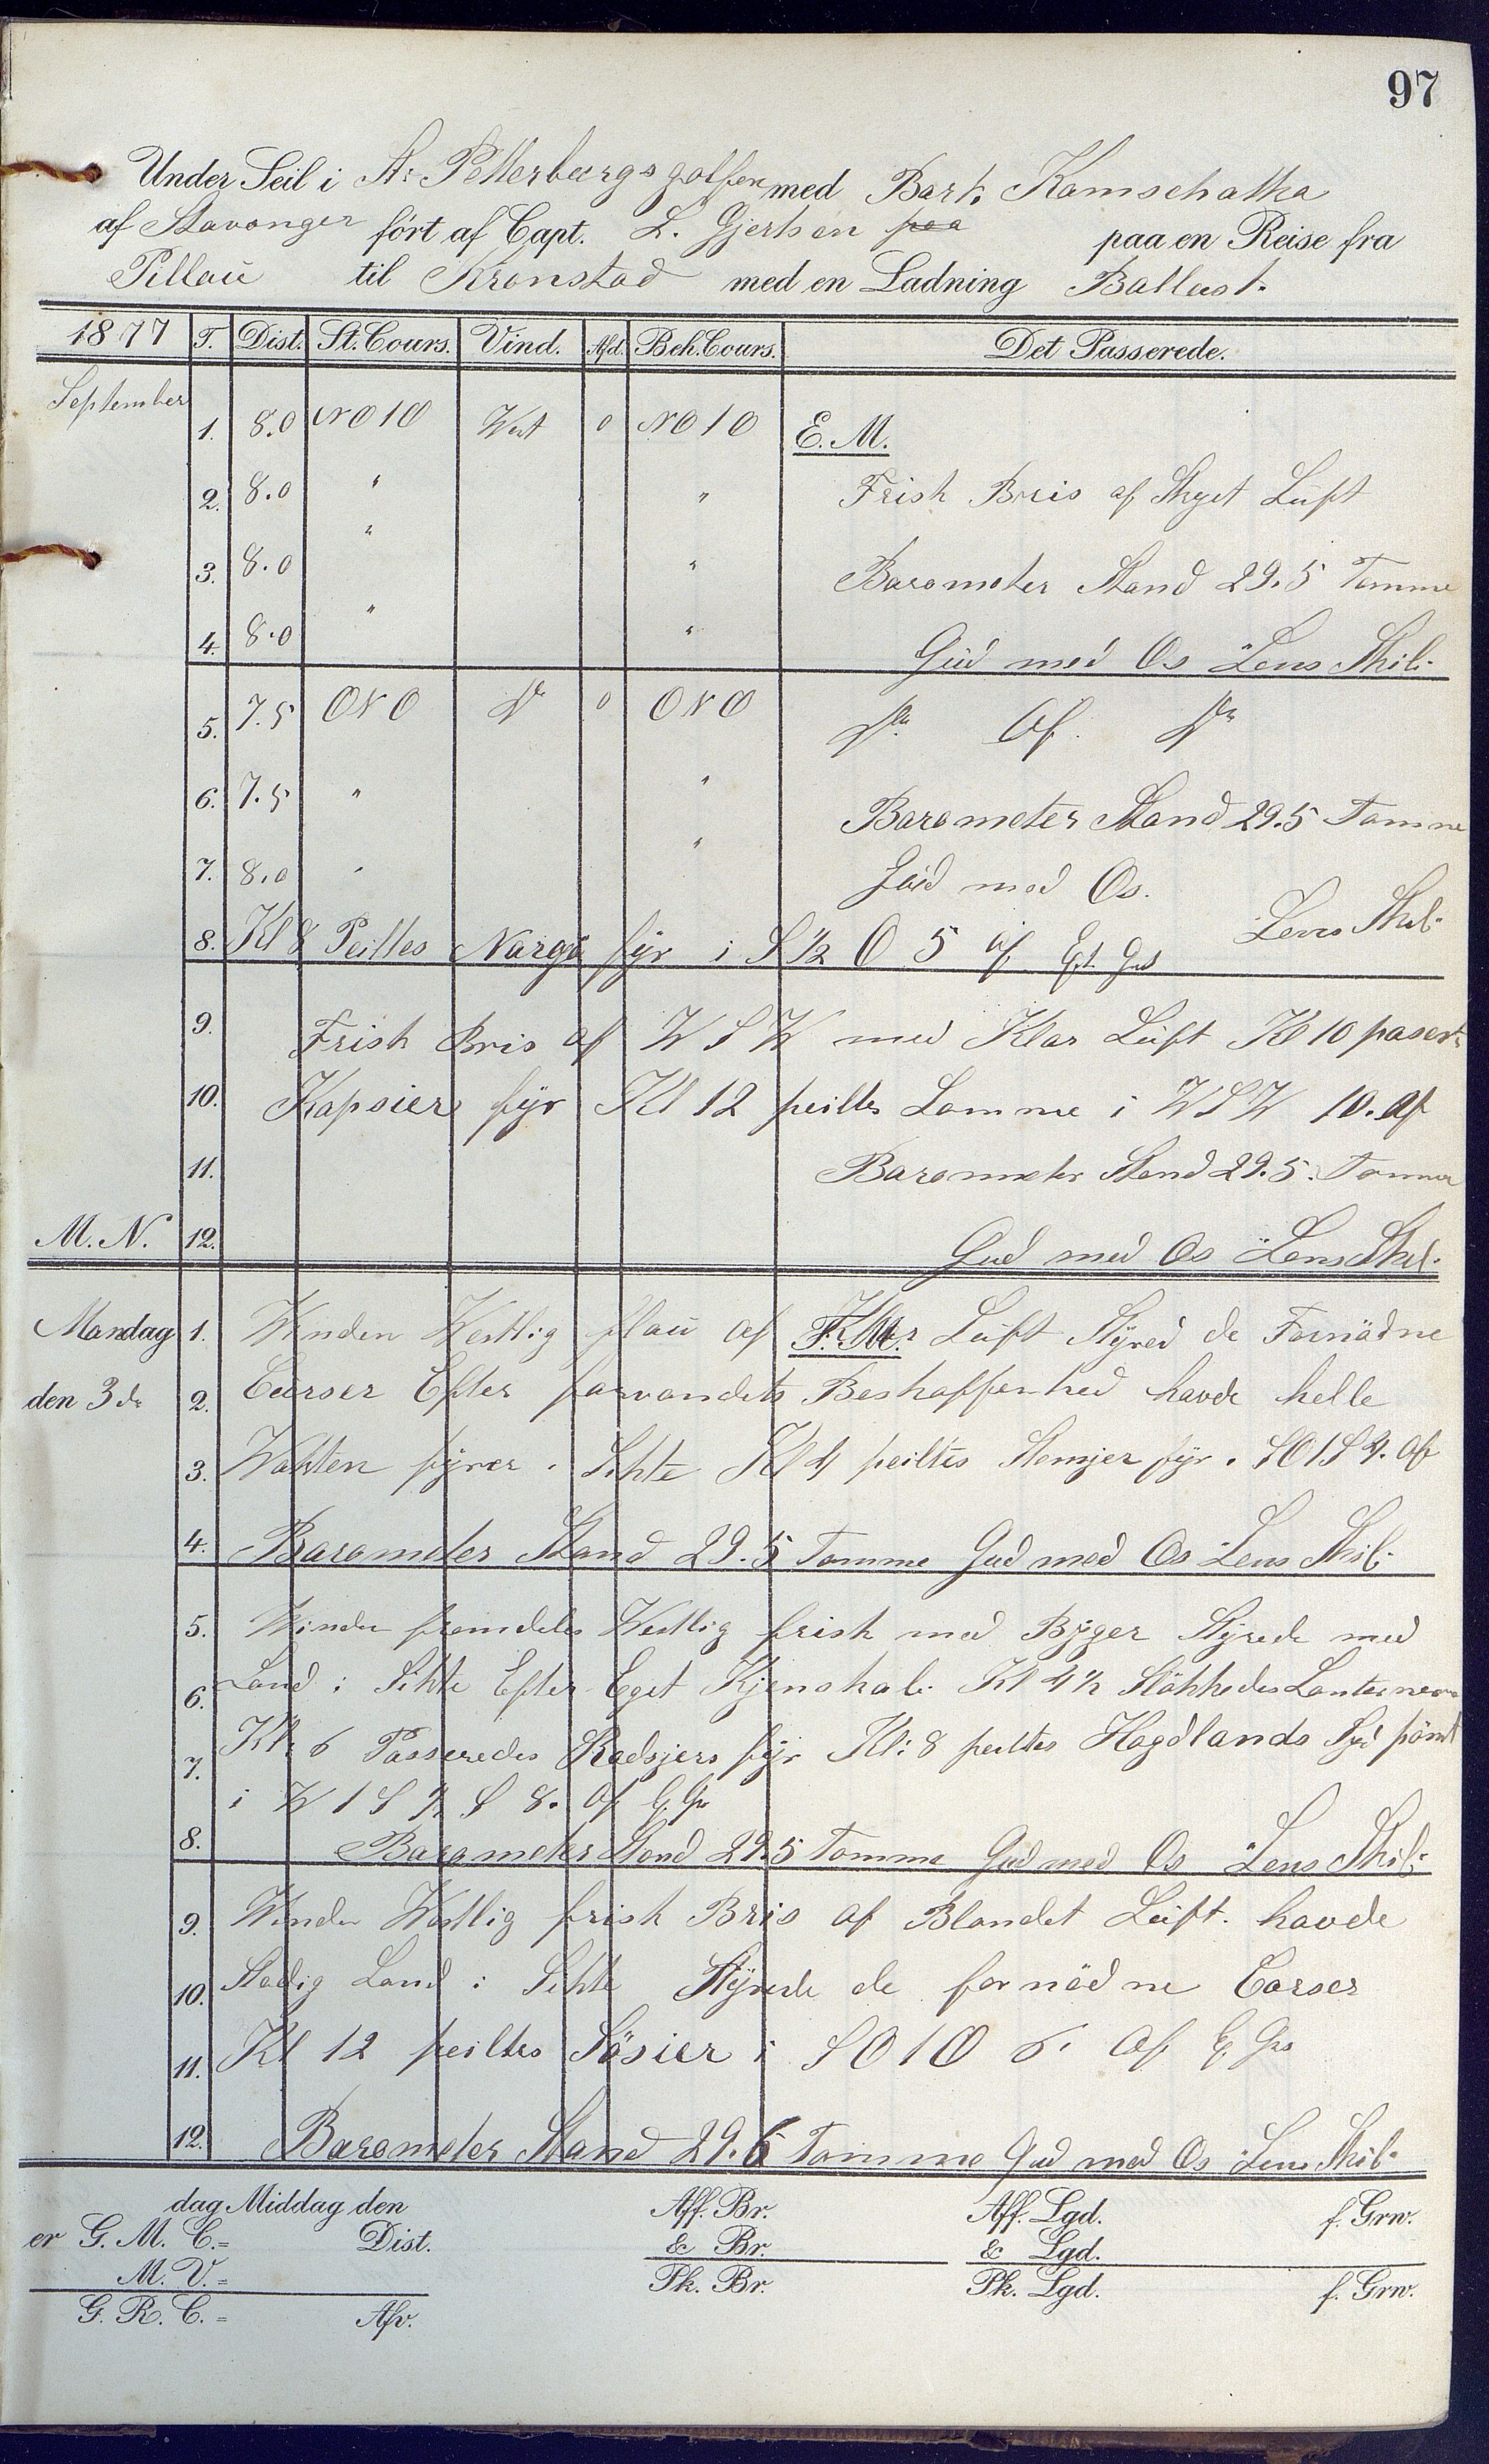 97
Under Seil i St Petterburgsgolfen med Bark. Kamschatka
af Stavanger ført af Capt. L. Gjertsen paa paa en Reise fra
Pillau til Kronstad med en Ladning Ballast.
1877 T. Dist. St. Cours. Vind. Afd. Beh. Cours. Det Passerede.
September
1. 8.0 NO 1 O West 0 NO 1 O E. M.
2. 8.0 " " Frisk Bris af Skyet Luft
3. 8.0 " " Barometer Stand 29.5 Tomme
4. 8.0 " " Gud med Os Lens Skib
5. 7.5 ONO Do 0 ONO Do Af Do
6. 7.5 " " Barometer Stand 29.5 Tomme
7. 8.0 " " Gud med Os.
Lens Skib
8. Kl 8 Peiltes Nargø fyr i S ½ O 5 af
9. Frisk Bris af WSW med Klar Luft Kl 10 pasert
10. Kapsier fyr Kl 12 peiltes Lamme i WSW 10. Af
11. Barometer Stand 29.5. Tomme
M. N. 12. Gud med Os Lens Skib
Mandag 1. Vinden Westlig flau af F. M. Klar Luft Styred de Fornødne
den 3de 2. Curser Efter farvandets Beskaffenhed havde helle
3. Wakten fyrer i Sikte Kl 4 peiltes fyr i SO1S 4. Af
4. Barometer Stand 29.5 Tomme Gud med Os Lens Skib
5. Vinden fremdeles Westlig frisk med Byger Styrede med
6. Land i Sikte Efter Eget Kjenskab Kl 4½ Slökkedes Lanternerne
7. Kl 6 Passeredes Rodsjers fyr Kl: 8 peiltes Hogdlands Syd pömt
i W 1 S ½ S 8. Af
8. Barometer Stand 29.5 Tomme Gud med Os Lens Skib
9. Vinden Westlig frisk Bris af Blandet Luft. havde
10. Stadig Land i Sikte Styrede de fornödne Corser
11. Kl 12 peiltes Sösier i SO 1 O 6. Af
12. Barometer Stand 29.6 Tomme Gud med Os Lens Skib
dag Middag den Aff. Br. Aff. Lgd. f. Grw.
er G. M. C. = Dist. & Br. & Lgd.
M. V. = Pk. Br. Pk. Lgd. f. Grw.
G. R. C. = Afv.